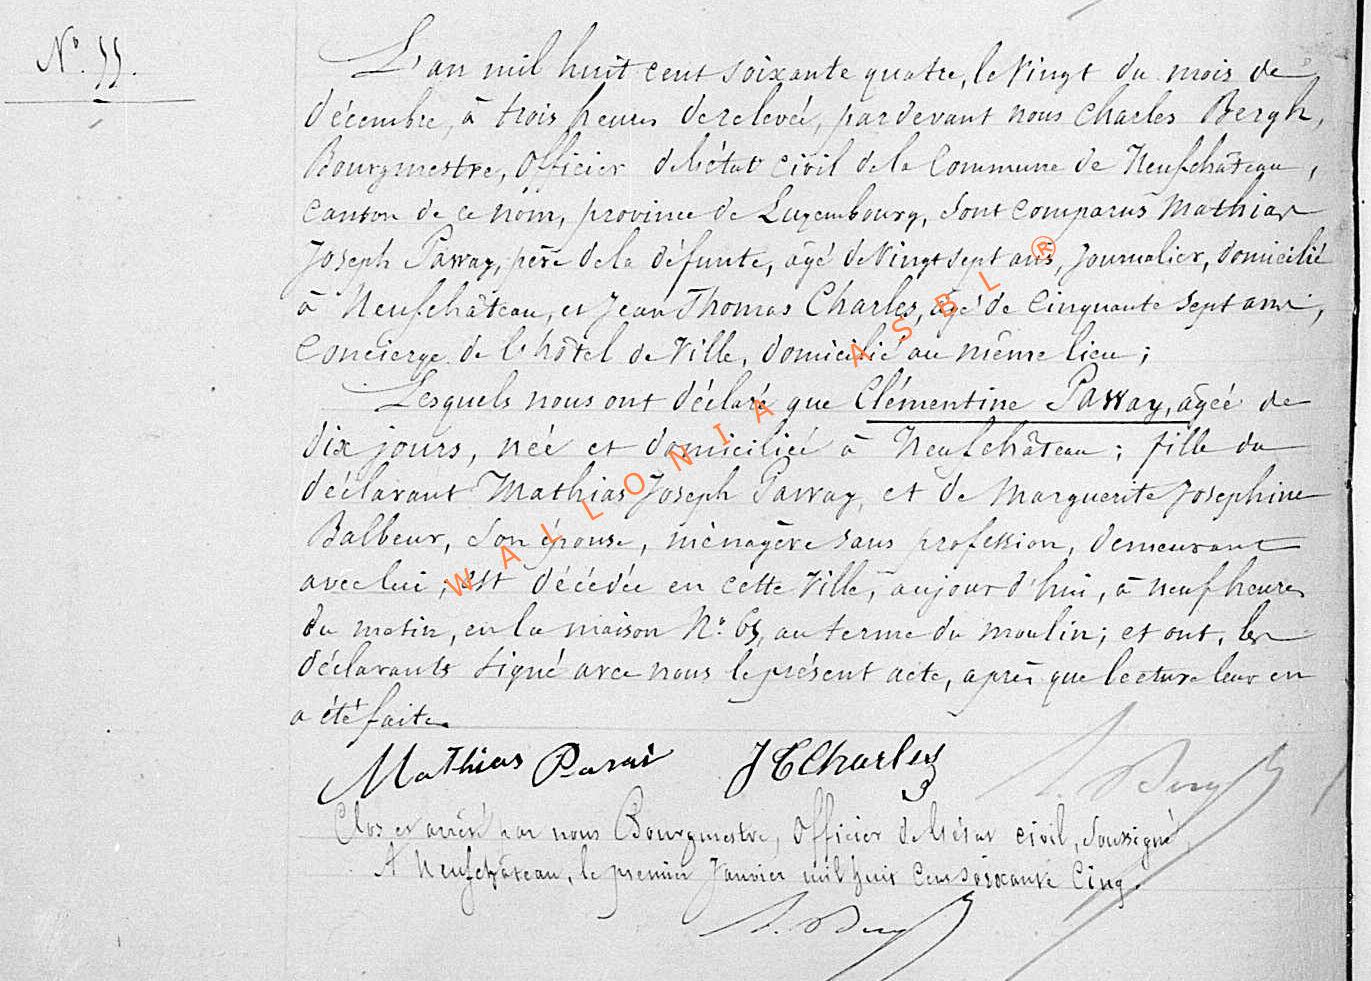 Nº 55.
L'an mil huit cent soixante quatre, le vingt du mois de
décembre, à trois heures de relevée, pardevant nous Charles Bergh,
Bourgmestre, Officier de l'état civil de la Commune de Neufchâteau,
canton de ce nom, province de Luxembourg, sont comparus Mathias
Joseph Parray, père de la défunte, âgé de vingt sept ans, journalier, domicilié
à Neufchâteau, et Jean Thomas Charles, âgé de cinquante sept ans,
concierge de l'hôtel de Ville, domicilié au même lieu;
Lesquels nous ont déclaré que Clémentine Parray, âgée de
dix jours, née et domiciliée à Neufchâteau; fille du
déclarant Mathias Joseph Parray, et de Marguerite Josephine
Balbeur, son épouse, ménagère sans profession, demeurant
avec lui; est décédée en cette Ville, aujourd'hui, à neuf heures
du matin, en la maison Nº 65, au terme du moulin; et ont, les
déclarants signé avec nous le présent acte, après que lecture leur en
a été faite.
Mathias Parai JTCharles
Clos et arrêté par nous Bourgmestre, Officier de l'état civil, soussigné,
A Neufchâteau, le premier Janvier mil huit cent soixante cinq.
WALLONIA ASBL ®